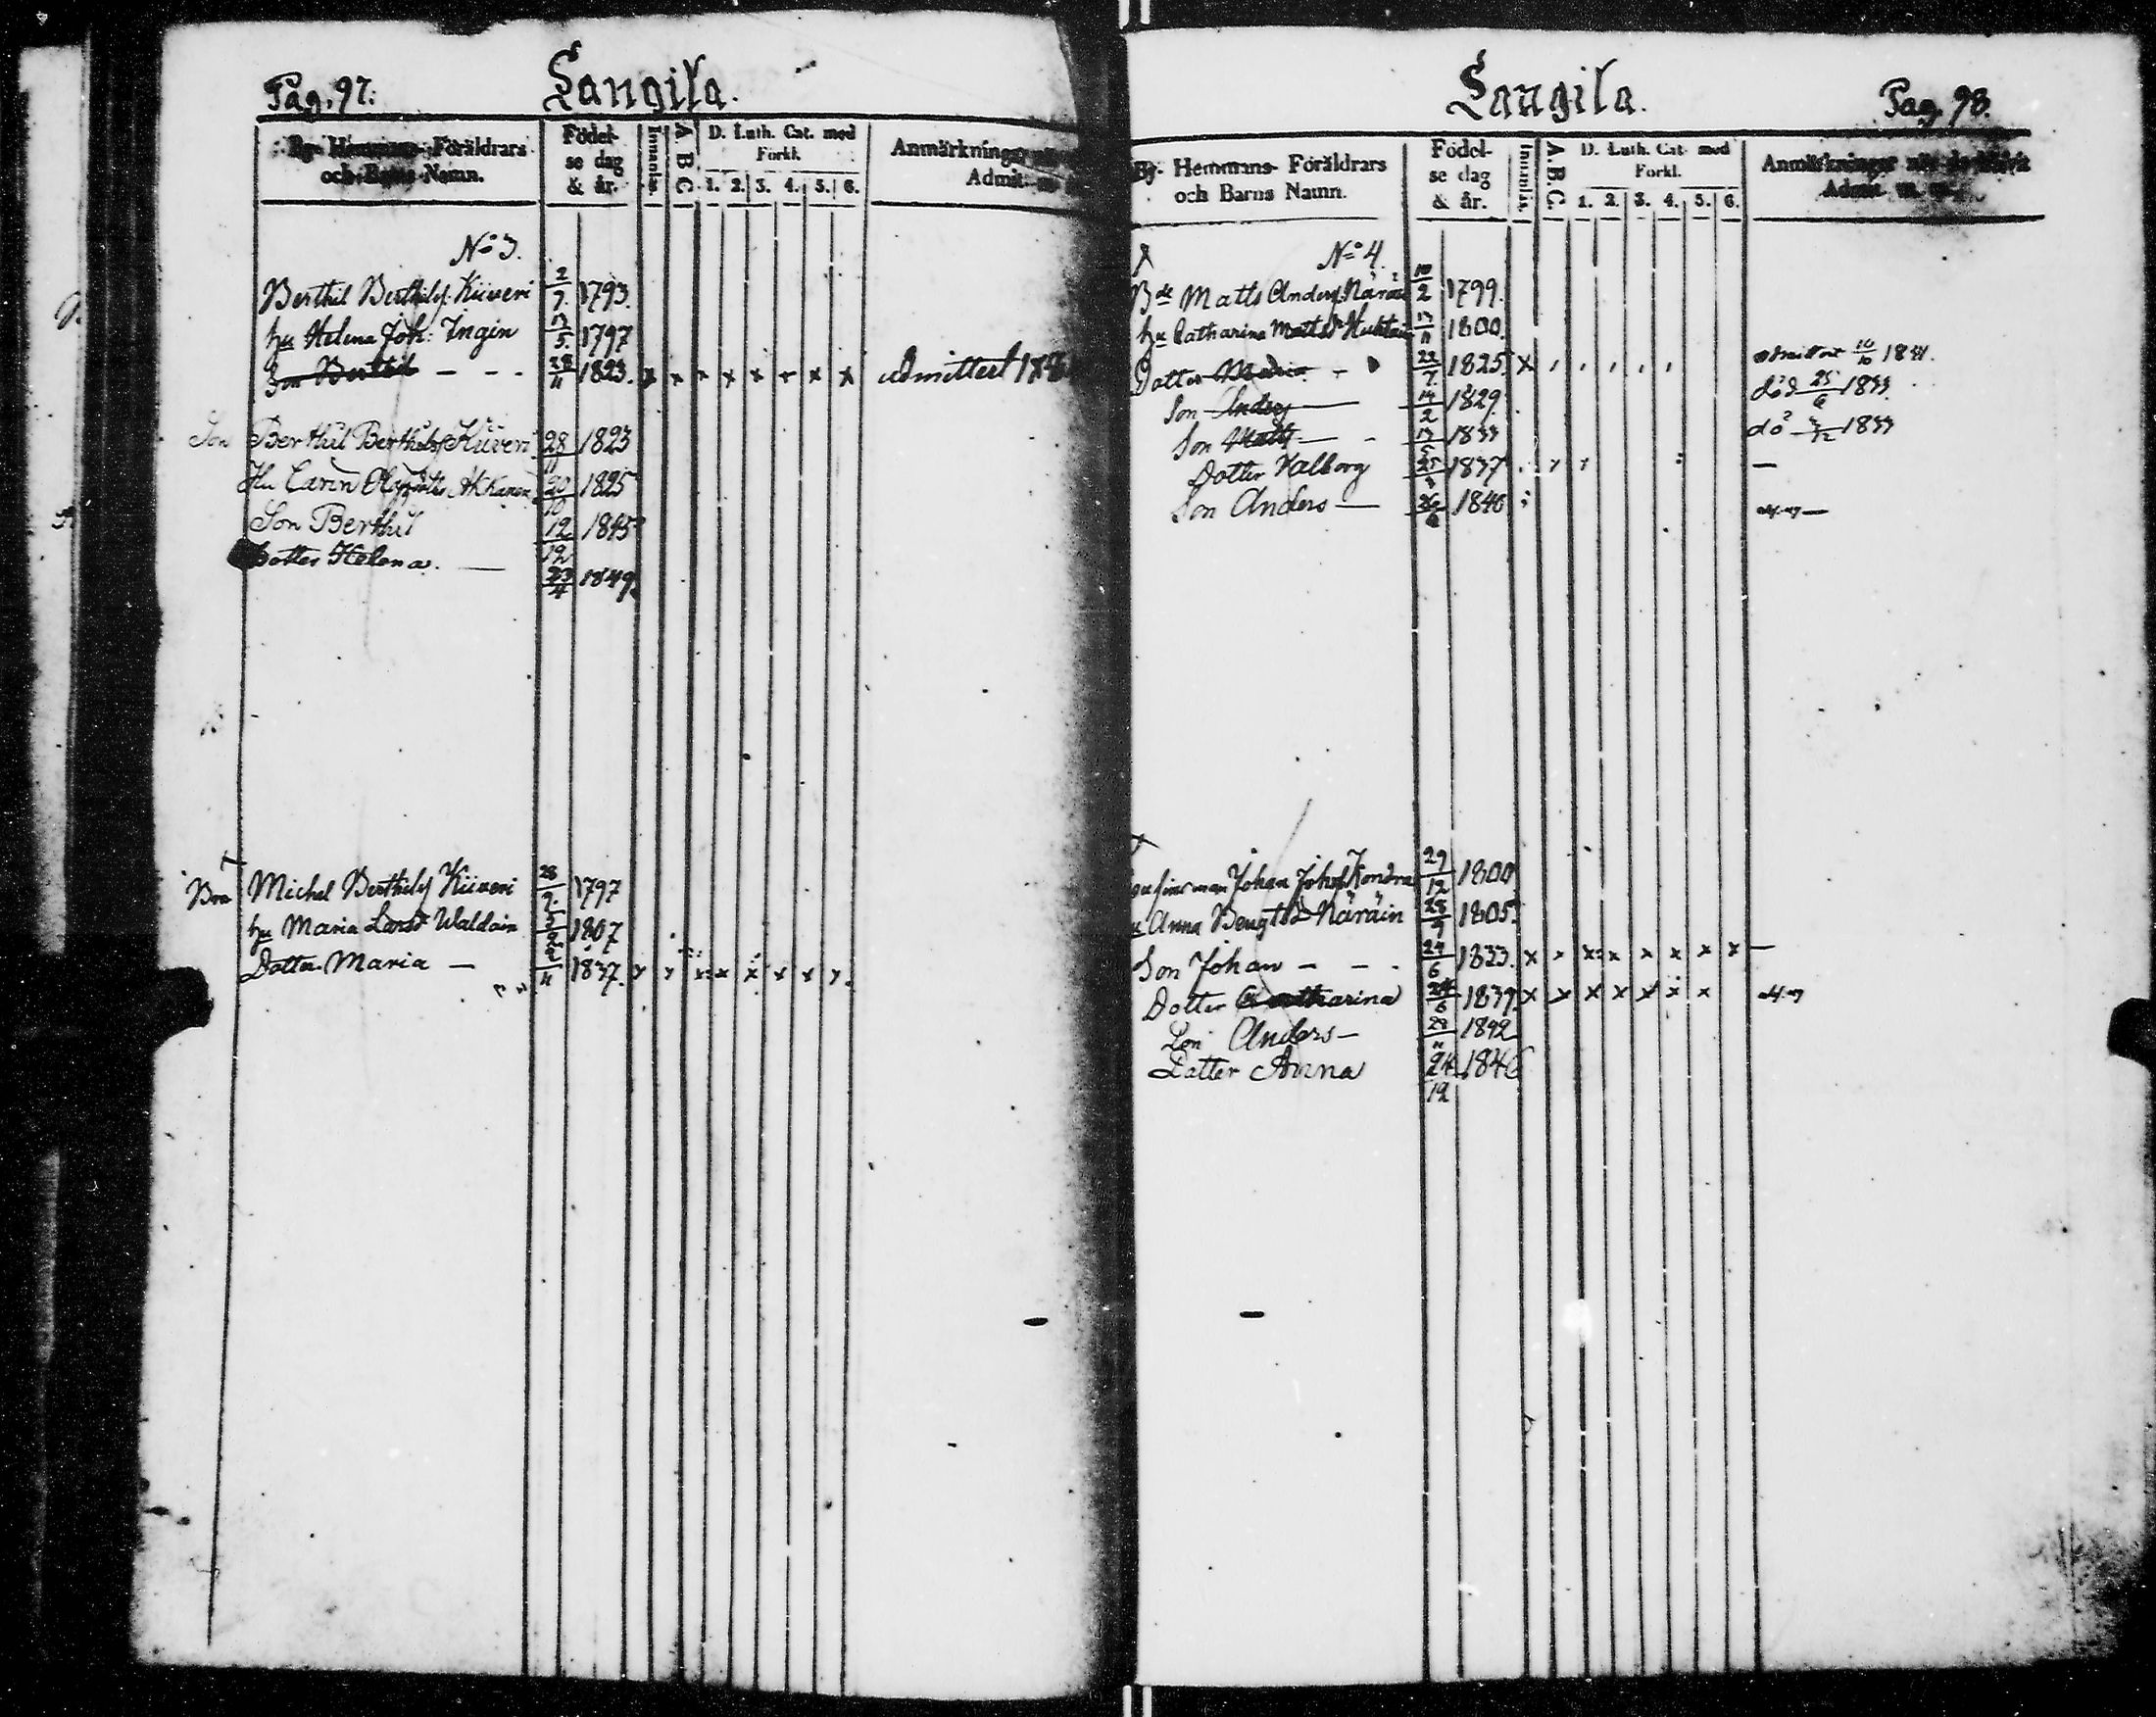 Pag. 97.
Langila.
By- Hemmans- Föräldrars och Barns Namn.
Födelse dag & år.
Innanläs.
A. B. C.
D. Luth. Cat. med Förkl.
1. 2. 3. 4. 5. 6.
Anmärkningar
Admit.
No 3.
Berthil Berthilsf Kiiveri 2/7 1793.
hu Helena Joh: Ingin 13/5 1797
Son Berthil - - - 28/11 1823. x x x x x x x x admitterd
Son Berthil Berthilsf Kiiveri 28/11 1823
Hu Carin Akkanen 20/10 1825
Son Berthil 12/12 1845
Dotter Helena. — 23/4 1849
Bro Michel Berthilsf Kiiveri 28/9 1797
hu Maria Larsd Waldain 5/2 1807
Dotter Maria — 2/11 1837.
Langila.
Pag. 98.
By- Hemmans- Föräldrars och Barns Namn.
Födelse dag & år.
Innanläs.
A. B. C.
D. Luth. Cat. med Förkl.
1. 2. 3. 4. 5. 6.
Anmärkningar
Admit.
No 4.
Bde Matts Andersf Näräin 10/2 1799.
hu Catharina Mattsd 13/11 1800.
Dotter Maria - 22/7 1825. x 10/10 1841.
Son Anders — 14/2 1829 död 25/6 1833.
Son Matts — 1833 do 1833
Dotter Valborg 1837 —
Son Anders — 26/6 1840
man Johan Johsf Kondra 29/12 1800
hu Anna Bengtsd Näräin 28/9 1805.
Son Johan - - - 24/6 1833. x x x x x x x x —
Dotter Catharina 24/6 1839 x x x x x x x
Son Anders — 28/11 1842
Dotter Anna 24/12 1846